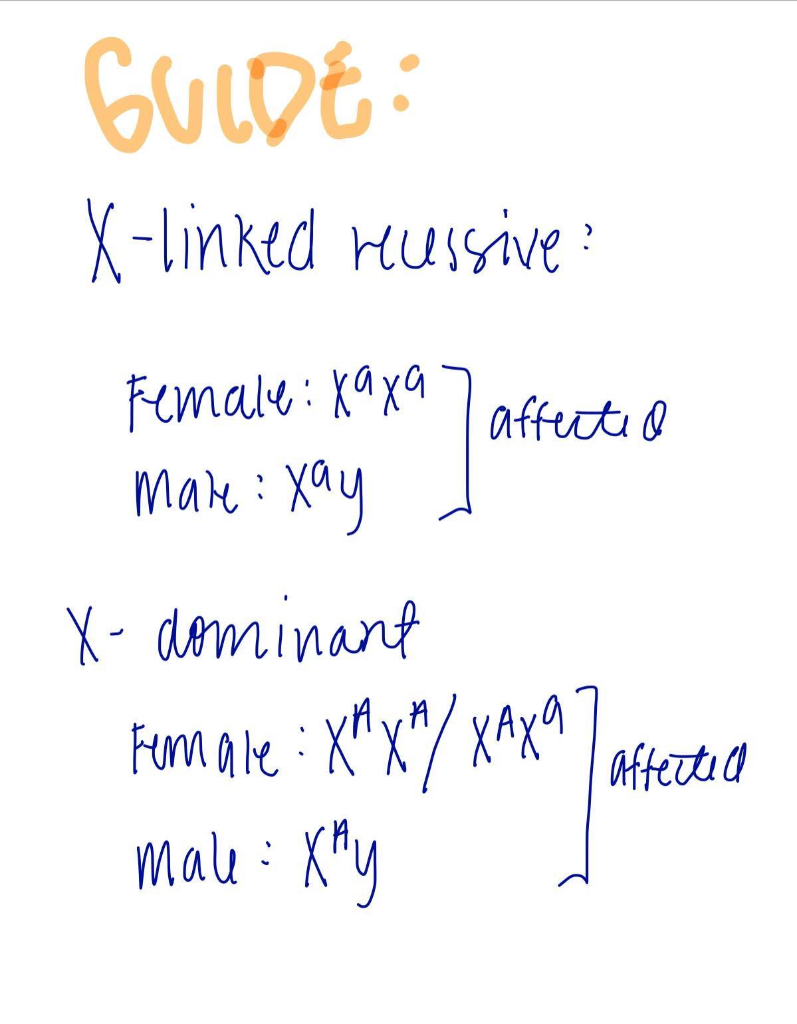 GUIDE:
X-linked recessive:
Female: XᵃXᵃ
Male: Xᵃy
affected
X- dominant
Female: XᴬXᴬ/ XᴬXᵃ
Male: Xᴬy
affected